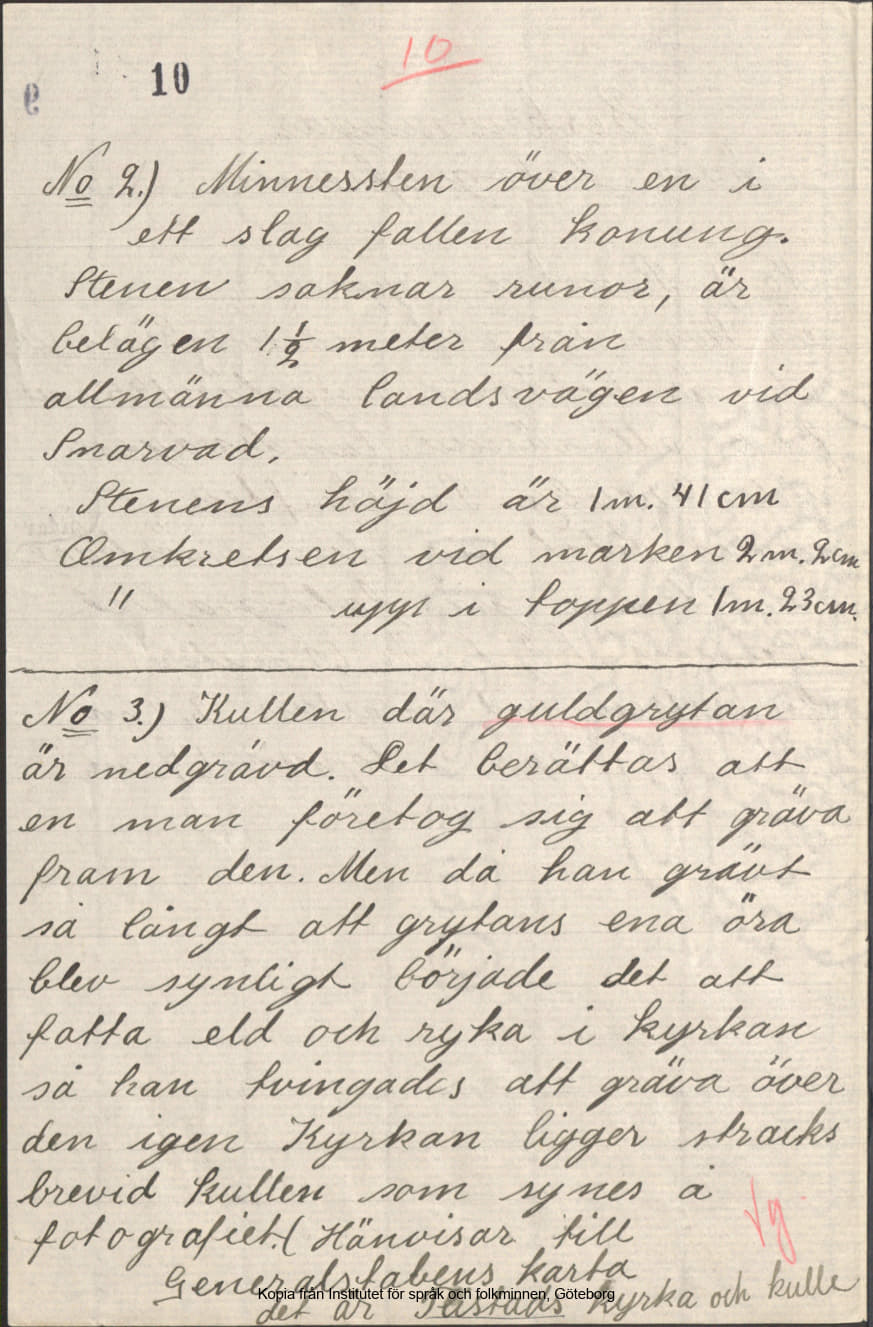 10
10
9
No 2.) Minnessten över en i
ett slag fallen konung.
Stenen saknar runor, är
belägen 1 1/2 meter från
allmänna landsvägen vid
Snarvad.
Stenens höjd är 1 m. 41 cm
Omkretsen vid marken 2 m. 2 cm
" upp i toppen 1 m. 23 cm.
No 3.) Kullen där guldgrytan
är nedgrävd. Det berättas att
en man företog sig att gräva
fram den. Men då han grävt
så långt att grytans ena öra
blev synligt började det att
fatta eld och ryka i kyrkan
så han tvingades att gräva över
den igen Kyrkan ligger stracks
brevid kullen som synes å
fotografiet. (Hänvisar till
Generalstabens karta
det är kyrka och kulle
Kopia från Institutet för språk och folkminnen, Göteborg